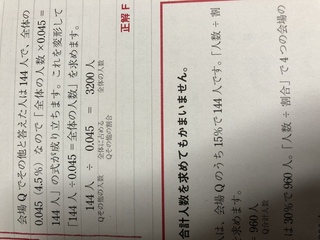 会場Qでその他と答えた人は144人で、全体の
0.045(4.5%)なので「全体の人数×0.045=
144人」の式が成り立ちます。これを変形して
「144人÷0.045=全体の人数」を求めます。
144人 ÷ 0.045 = 3200人
Qその他の人数 全体に占める 全体の人数
Qその他の割合
正解F
合計人数を求めてもかまいません。
は、会場Qのうち15%で144人です。「人数÷割
求めます。
960人
は30%で960人。「人数÷割合」で4つの会場の